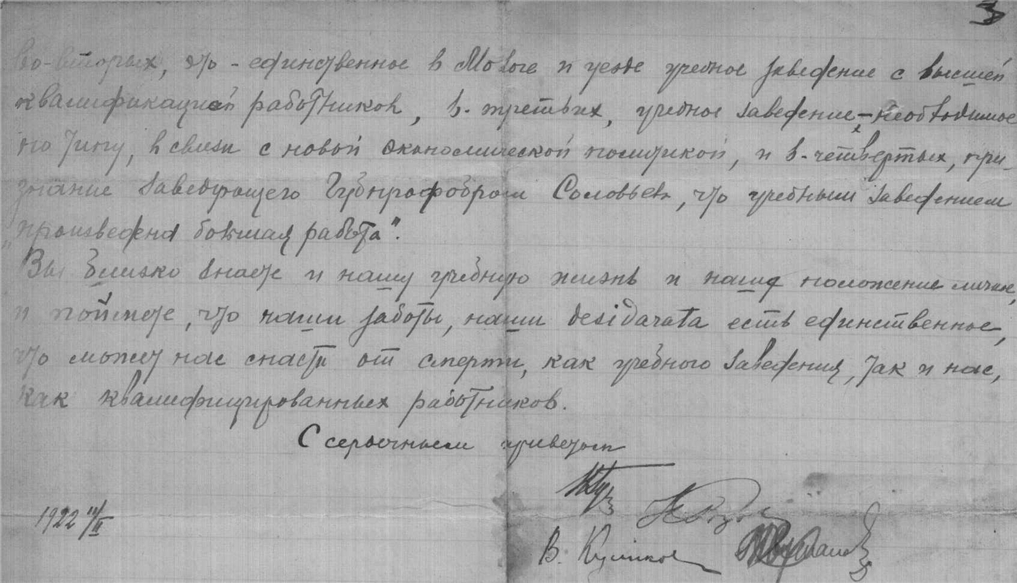 3
во-вторых, это - единственное в Мологе и уезде учебное заведение с высшей
квалификацией работников, в-третьих, учебное заведение - необходимое
по типу, в связи с новой экономической политикой, и в-четвертых, при-
знание заведующего Губпрофобром Соловьева, что учебным заведением
"произведена большая работа".
Вы близко знаете и нашу учебную жизнь и наше положение личное,
и поймете, что наши заботы, наши desidarata есть единственное,
что может нас спасти от смерти, как учебного заведения, так и нас,
как квалифицированных работников.
С сердечным приветом
1922 11/II
В. Куликов